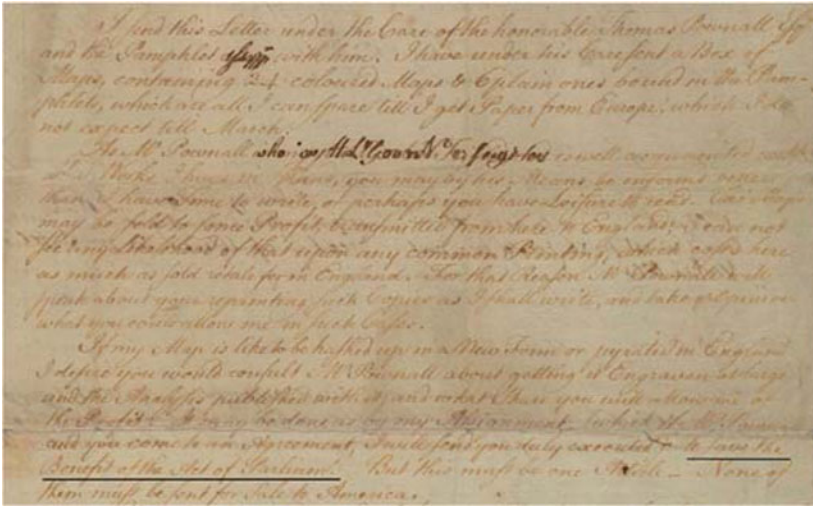 I send this Letter under the Care of the honorable Thomas Pownall Esqr
and the Pamphlet with him. I have under his Care sent a Box of
Maps, containing 24 coloured Maps & 6 plain ones bound in the Pam-
phlets, which are all I can spare till I get Paper from Europe, which I do
not expect till March.
As Mr. Pownall who is well acquainted with
Works I have in Hand, you may by his Means be informd more
than I have Time to write, or perhaps you have Leisure to read. Maps
may be sold to some Profit, transmitted from here to England; I can not
see any Likelihood of that upon any common Printing, which costs here
as much as sold retale for in England. For that Reason Mr. Pownall will
speak about your reprinting such Copies as I shall write, and take yr. Opinion
what you coud allow me in such Cases.
If my Map is like to be hashed up in a New Form or pyrated in England
I desire you would consult Mr. Pownall about getting it Engraven at large
and the Analysis published with it, and what Share you will allow me of
the Profit. It may be done as by my Assignment (which if Mr.
and you come to an Agreement, I will send you duly executed) to have the
Benefit of the Act of Parliamt. But this must be one Article — None of
them must be sent for Sale to America.